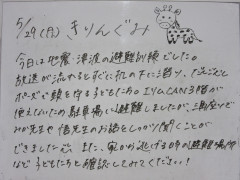 5/29(月) きりんぐみ
今日は地震・津波の避難訓練でした。
放送が流れるとすぐに机の下に潜り、だんごむし
ポーズで頭を守る子どもたち。エリムCAN3階が
使えないため駐車場に避難しましたが、
先生や 先生のお話をしっかり聞くことが
できました。また、家から逃げる時の避難場所
など子どもたちと確認してみてください!